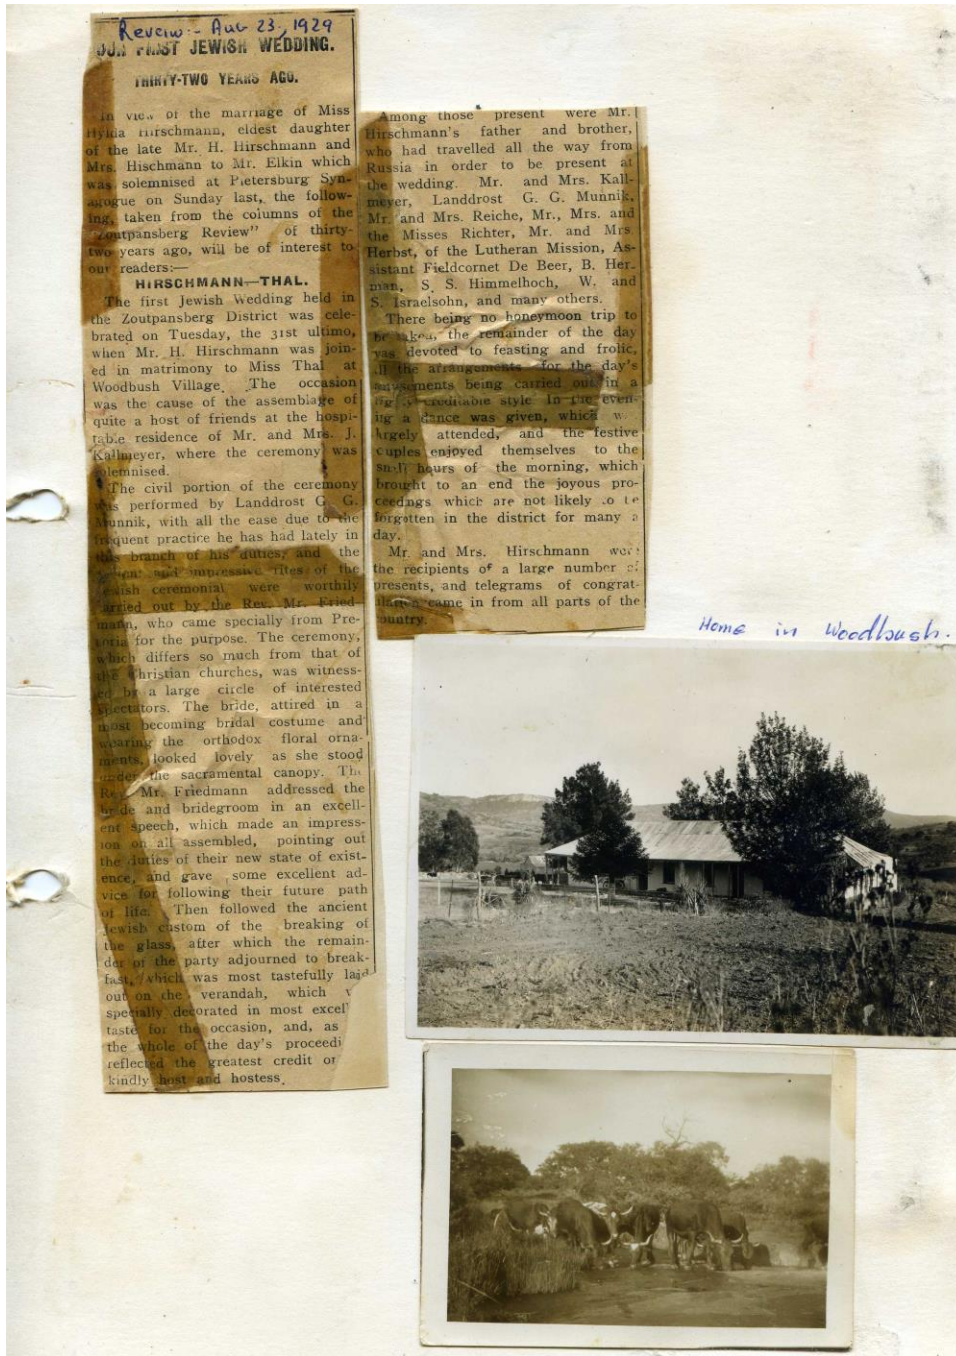 Review:- Aug 23, 1929
OUR FIRST JEWISH WEDDING.
THIRTY-TWO YEARS AGO.
In view of the marriage of Miss
Hylda Hirschmann, eldest daughter
of the late Mr. H. Hirschmann and
Mrs. Hischmann to Mr. Elkin which
was solemnised at Pietersburg Syn-
agogue on Sunday last, the follow-
ing, taken from the columns of the
"Zoutpansberg Review" of thirty-
two years ago, will be of interest to
our readers:—
HIRSCHMANN—THAL.
The first Jewish Wedding held in
the Zoutpansberg District was cele-
brated on Tuesday, the 31st ultimo,
when Mr. H. Hirschmann was join-
ed in matrimony to Miss Thal at
Woodbush Village. The occasion
was the cause of the assemblage of
quite a host of friends at the hospi-
table residence of Mr. and Mrs. J.
Kallmeyer, where the ceremony was
solemnised.
The civil portion of the ceremony
was performed by Landdrost G. G.
Munnik, with all the ease due to the
frequent practice he has had lately in
this branch of his duties, and the
and impressive rites of the
Jewish ceremonial were worthily
carried out by the Rev. Mr. Fried-
mann, who came specially from Pre-
toria for the purpose. The ceremony,
which differs so much from that of
the Christian churches, was witness-
ed by a large circle of interested
spectators. The bride, attired in a
most becoming bridal costume and
wearing the orthodox floral orna-
ments, looked lovely as she stood
under the sacramental canopy. The
Rev. Mr. Friedmann addressed the
bride and bridegroom in an excell-
ent speech, which made an impress-
ion on all assembled, pointing out
the duties of their new state of exist-
ence, and gave some excellent ad-
vice for following their future path
of life. Then followed the ancient
Jewish custom of the breaking of
the glass, after which the remain-
der of the party adjourned to break-
fast, which was most tastefully laid
out on the verandah, which
specially decorated in most excel
taste for the occasion, and, as
the whole of the day's proceedi
reflected the greatest credit or
kindly host and hostess.
Among those present were Mr.
Hirschmann's father and brother,
who had travelled all the way from
Russia in order to be present at
the wedding. Mr. and Mrs. Kall-
meyer, Landdrost G. G. Munnik,
Mr. and Mrs. Reiche, Mr., Mrs. and
the Misses Richter, Mr. and Mrs.
Herbst, of the Lutheran Mission, As-
sistant Fieldcornet De Beer, B. Her-
man, S. S. Himmelhoch, W. and
S. Israelsohn, and many others.
There being no honeymoon trip to
be taken, the remainder of the day
was devoted to feasting and frolic,
all the arrangements for the day's
amusements being carried out in a
highly creditable style In the even-
ing a dance was given, which w
largely attended, and the festive
couples enjoyed themselves to the
small hours of the morning, which
brought to an end the joyous pro-
ceedings which are not likely to be
forgotten in the district for many a
day.
Mr. and Mrs. Hirschmann were
the recipients of a large number of
presents, and telegrams of congrat-
ulation came in from all parts of the
country.
Home in Woodbush.